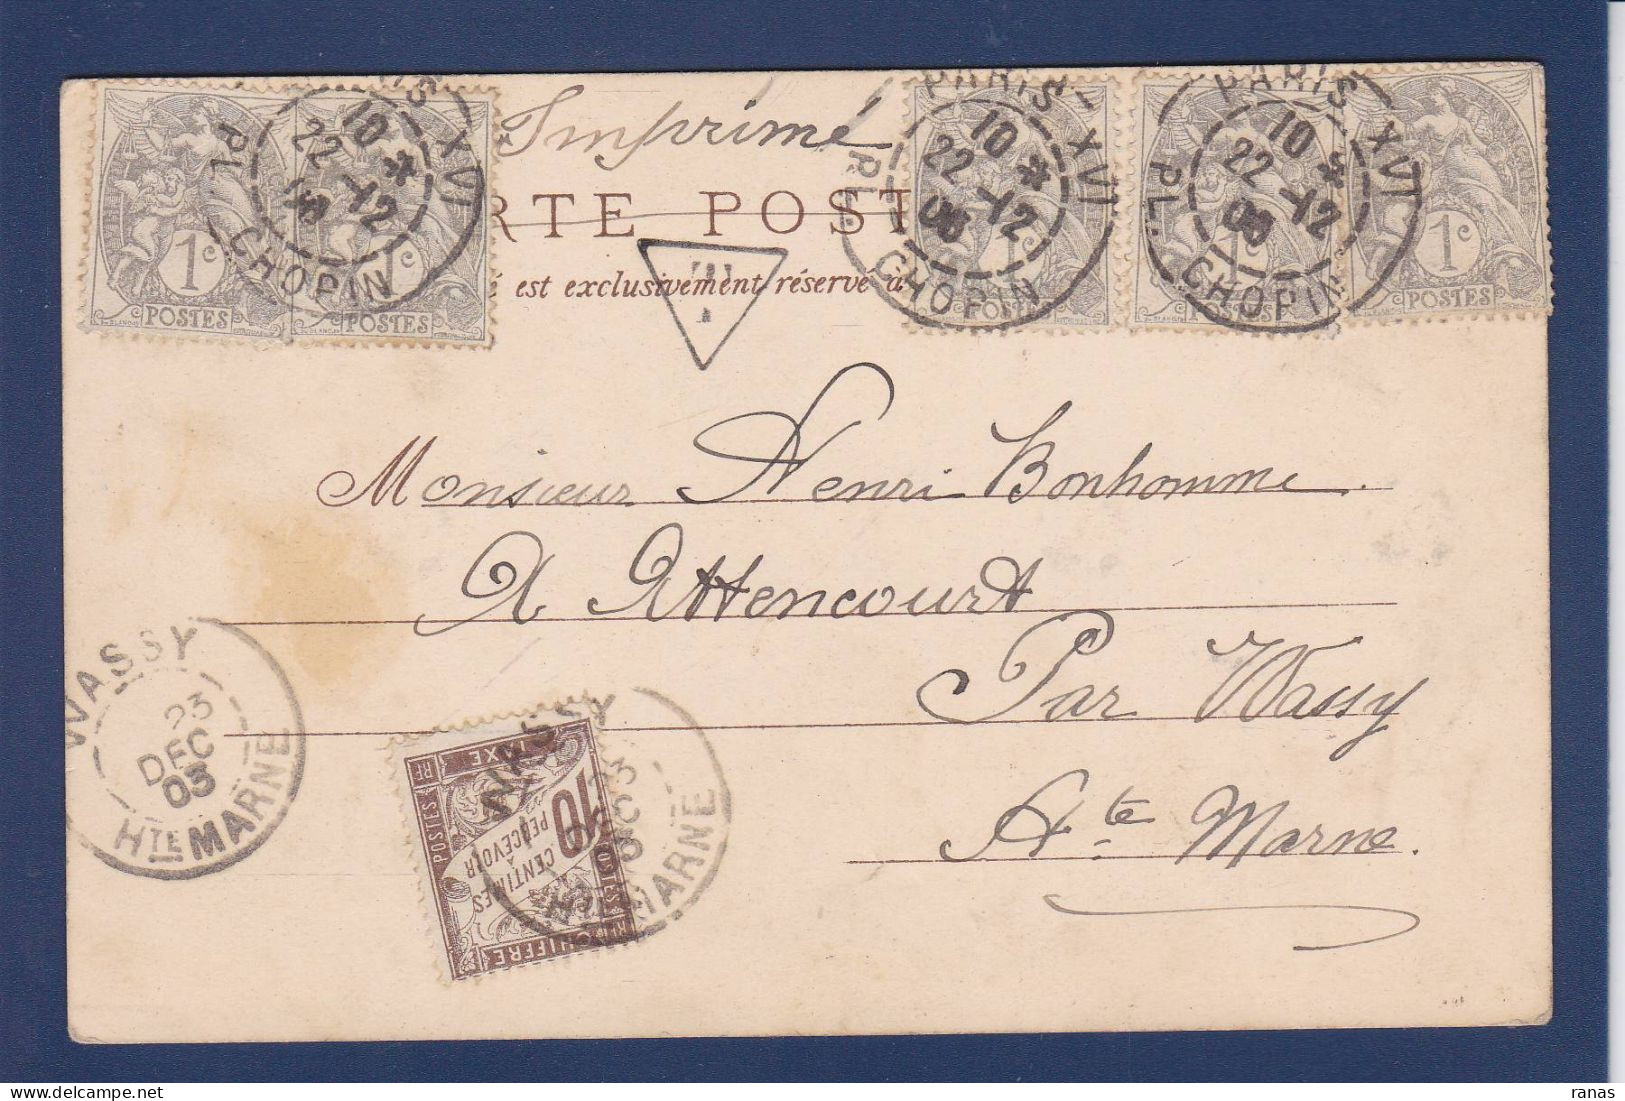 Imprimé
RTE POST
est exclusivement réservé à
1c POSTES
1c POSTES
POSTES
1c POSTES
1c POSTES
IS XVI
PL. CHOPIN
10 *
22 -12
PARIS XVI
PL. CHOPIN
10 *
22 -12
03
PARIS XVI
PL. CHOPIN
10 *
22 -12
03
T
Monsieur Henri Bonhomme
A Attencourt
Par Wassy
Hte Marne.
WASSY
23
DEC
03
HTE MARNE
WASSY
23
HTE MARNE
CHIFFRE TAXE
POSTES
RF
10
CENTIMES
À
PERCEVOIR
ranas